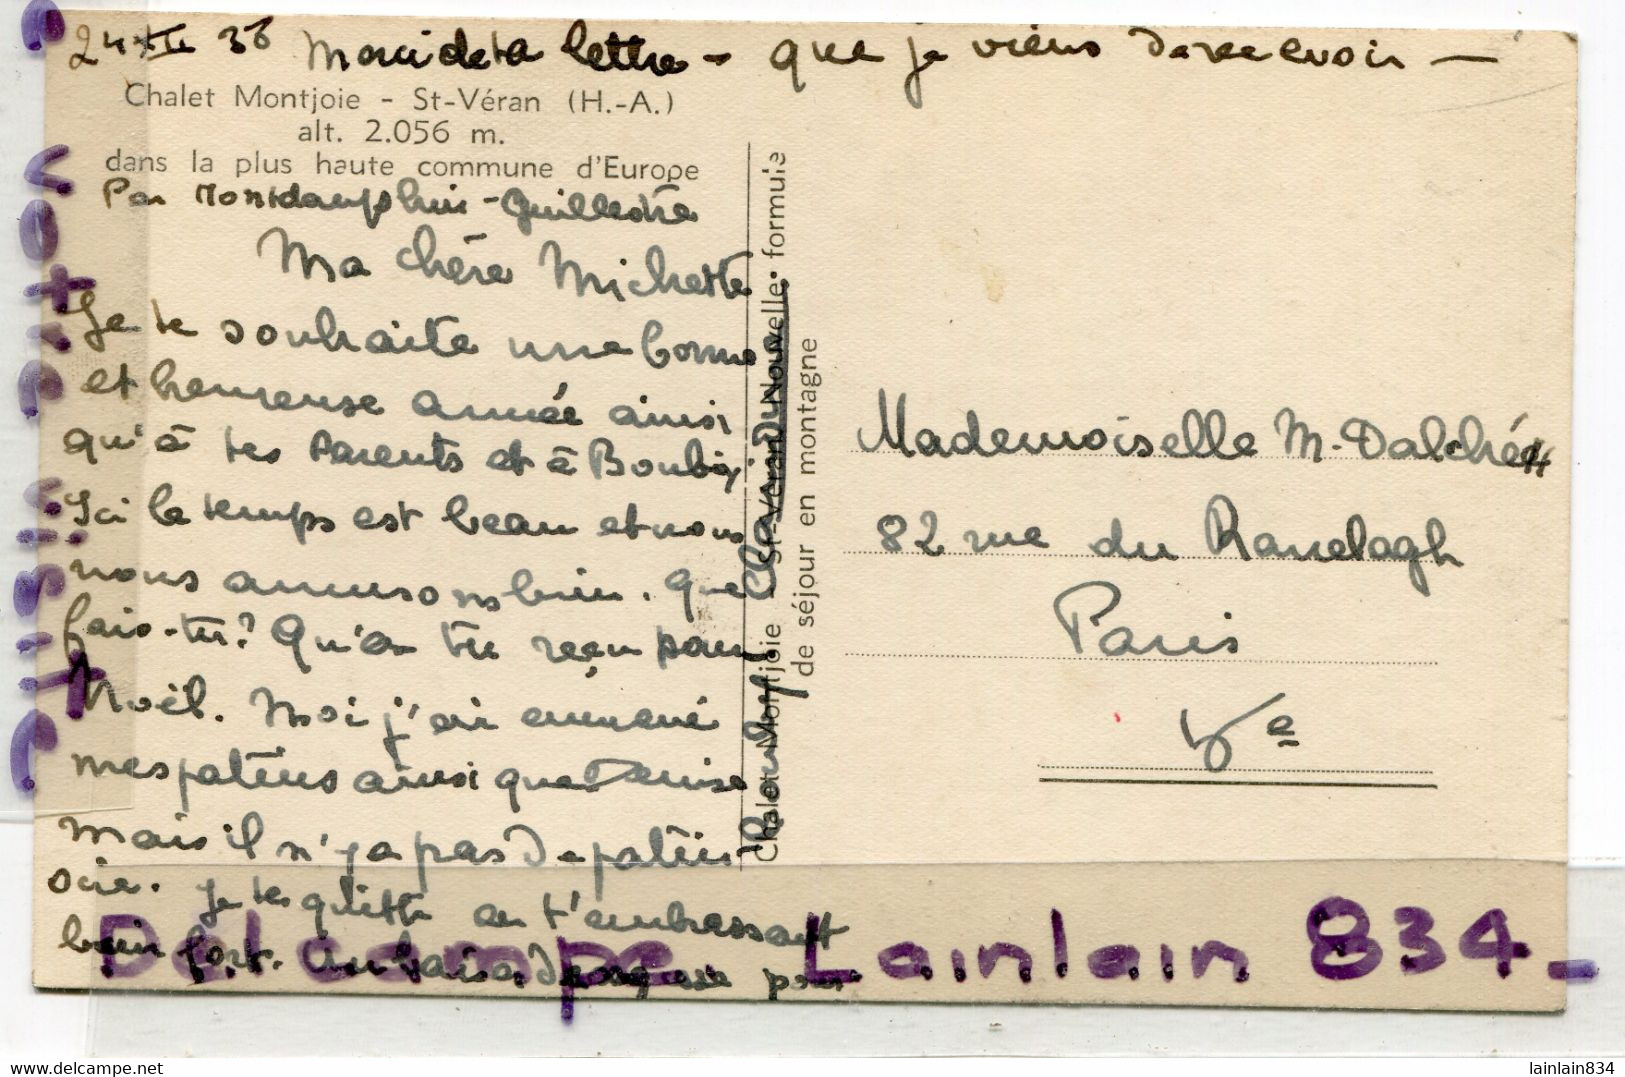 24 XII 36 Merci de ta lettre - que je viens de recevoir -
Chalet Montjoie - St-Véran (H.-A.)
alt. 2.056 m.
dans la plus haute commune d'Europe
Par Montdauphin - Guillestre
Ma chère Michette
Je te souhaite une bonne
et heureuse année ainsi
qu'à tes Parents et à
Ici le temps est beau et nous
nous amusons bien. Que
fais-tu? Qu'a tu reçu pour
Noël. Moi j'ai emmené
mes patins ainsi que Denise
mais il n'y a pas de patin
oire. Je te quitte en t'embrassant
bien fort. Un baiser de pour
Chalet Montjoie - St-Véran Nouvelle formule
de séjour en montagne
Mademoiselle M. Dalché
82 rue du Ranelagh
Paris
Delcampe Lainlain 834_
lainlain834